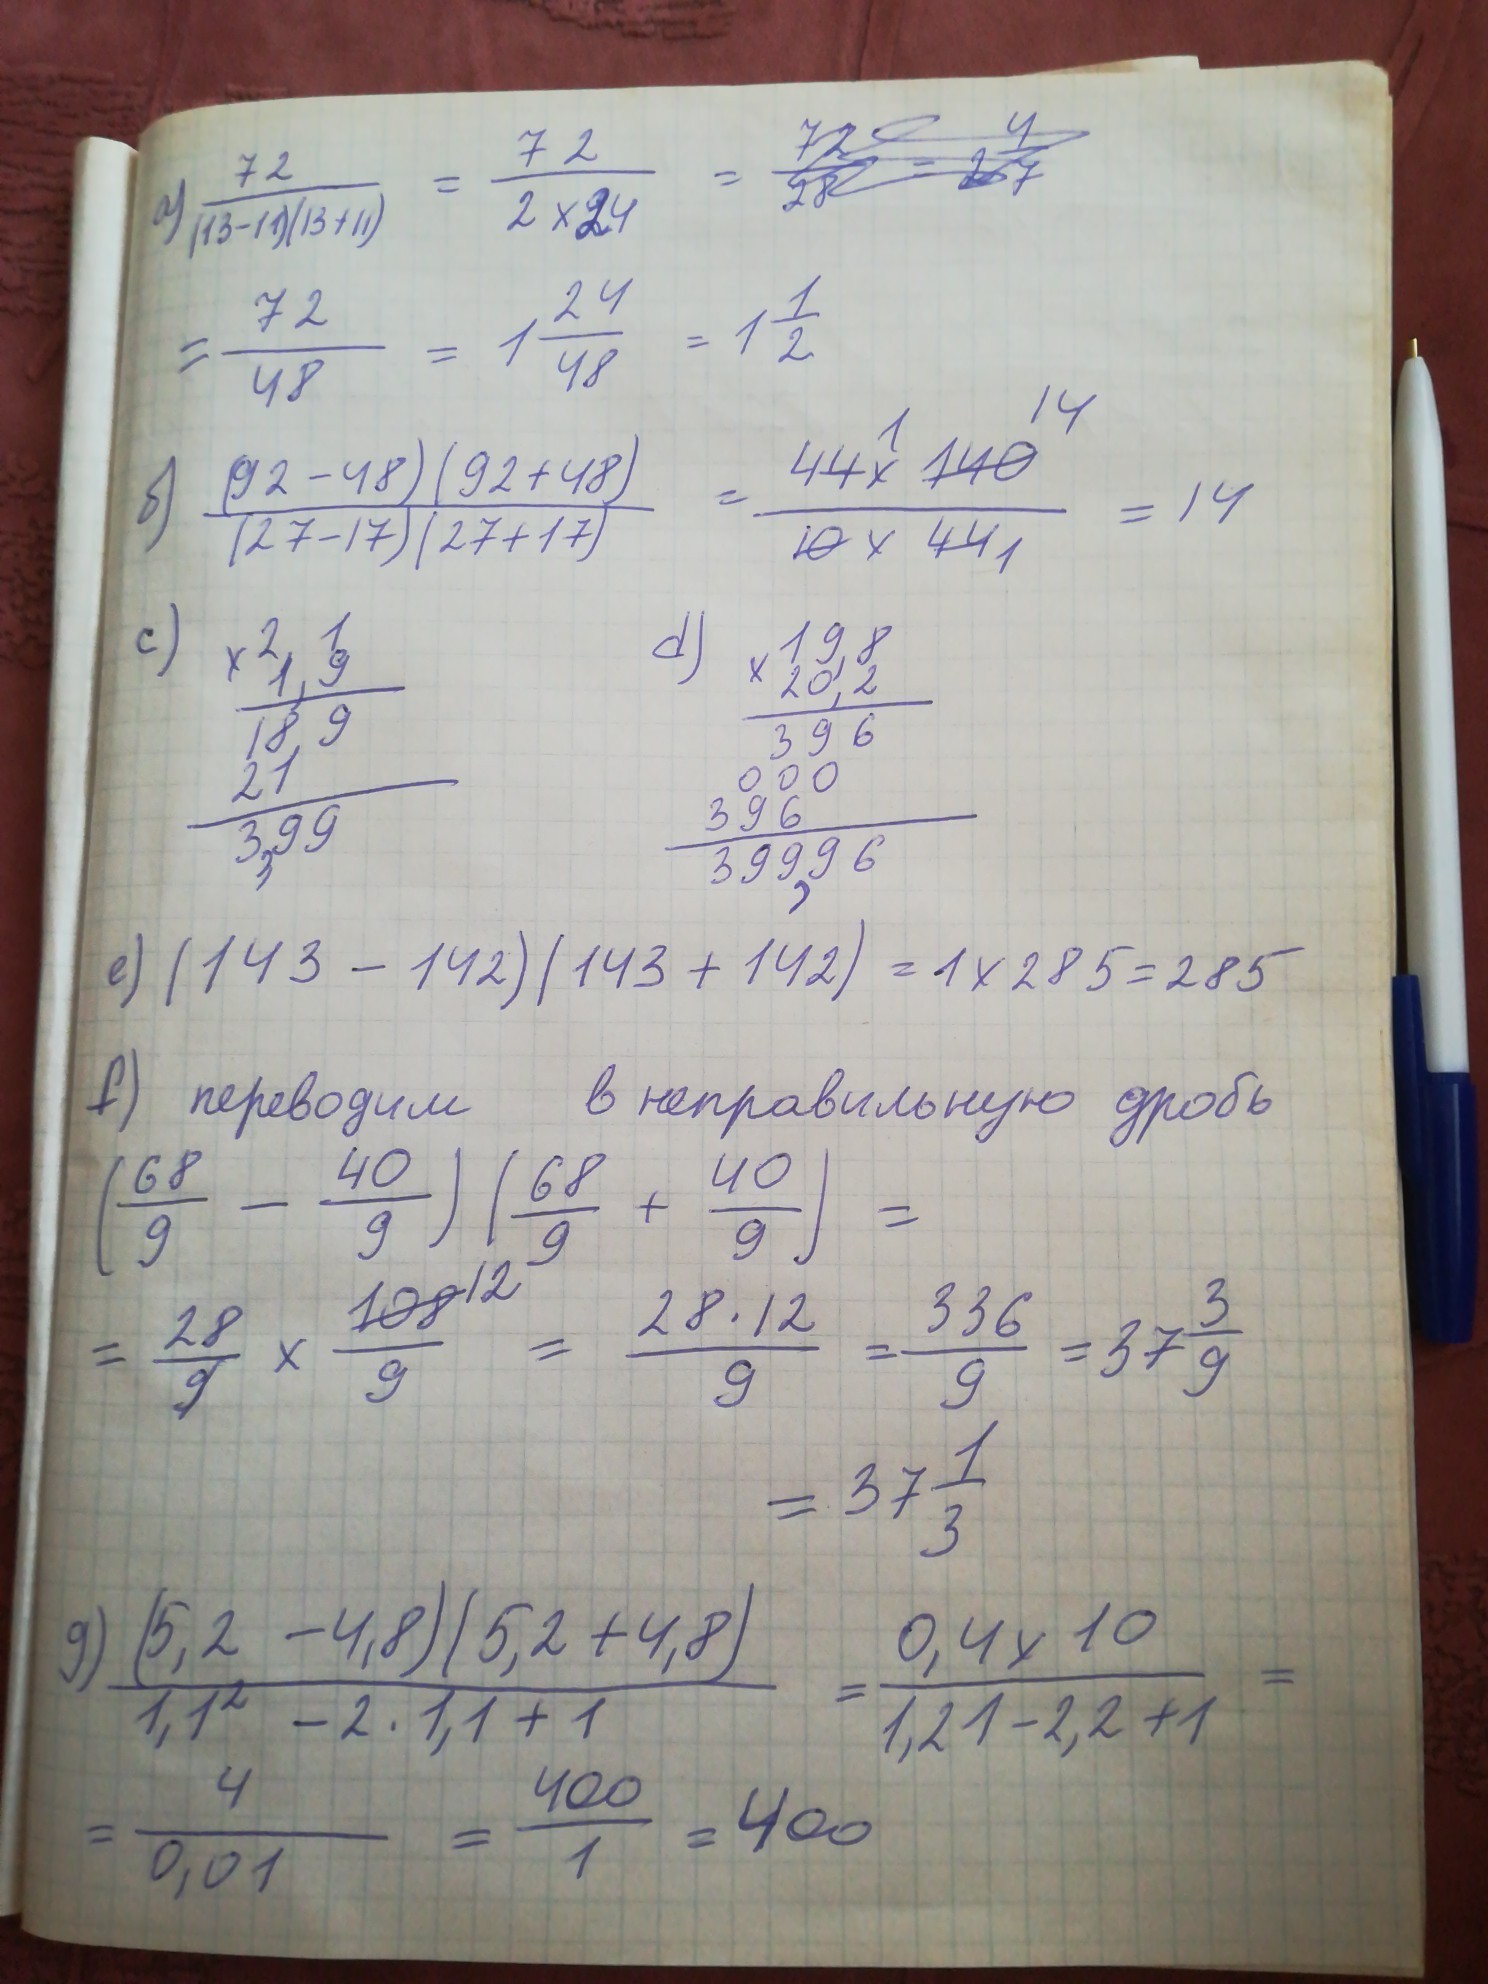 а) 72/((13-11)(13+11)) = 72/(2×24) = 72/28 = 2 4/7
= 72/48 = 1 24/48 = 1 1/2
б) ((92-48)(92+48))/((27-17)(27+17)) = (44 1 × 140 14)/(10 × 44 1) = 14
c) ×2,1 d) ×19,8
1,9 20,2
18,9 396
21 000
3,99 396
399,96
e) (143-142)(143+142) = 1×285=285
f) переводим в неправильную дробь
(68/9 - 40/9)(68/9 + 40/9) =
= 28/9 × 108 12/9 = 28·12/9 = 336/9 = 37 3/9
= 37 1/3
g) ((5,2-4,8)(5,2+4,8))/(1,1² - 2·1,1+1) = (0,4×10)/(1,21-2,2+1) =
= 4/0,01 = 400/1 = 400